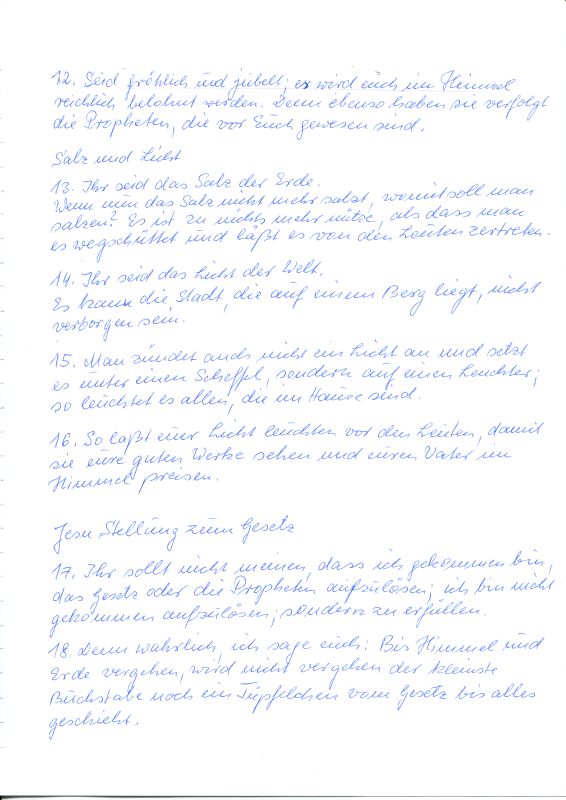 12. Seid fröhlich und jubelt; es wird euch im Himmel
reichlich belohnt werden. Denn ebenso haben sie verfolgt
die Propheten, die vor Euch gewesen sind.
Salz und Licht
13. Ihr seid das Salz der Erde.
Wenn nun das Salz nicht mehr salzt, womit soll man
salzen? Es ist zu nichts mehr nütze, als dass man
es wegschüttet und läßt es von den Leuten zertreten.
14. Ihr seid das Licht der Welt.
Es kann die Stadt, die auf einem Berg liegt, nicht
verborgen sein.
15. Man zündet auch nicht ein Licht an und setzt
es unter einen Scheffel, sondern auf einen Leuchter;
so leuchtet es allen, die im Hause sind.
16. So laßt euer Licht leuchten vor den Leuten, damit
sie eure guten Werke sehen und euren Vater im
Himmel preisen.
Jesu Stellung zum Gesetz
17. Ihr sollt nicht meinen, dass ich gekommen bin,
das Gesetz oder die Propheten aufzulösen; ich bin nicht
gekommen aufzulösen; sondern zu erfüllen.
18. Denn wahrlich, ich sage euch: Bis Himmel und
Erde vergehen, wird nicht vergehen der kleinste
Buchstabe noch ein Tüpfelchen vom Gesetz bis alles
geschieht.